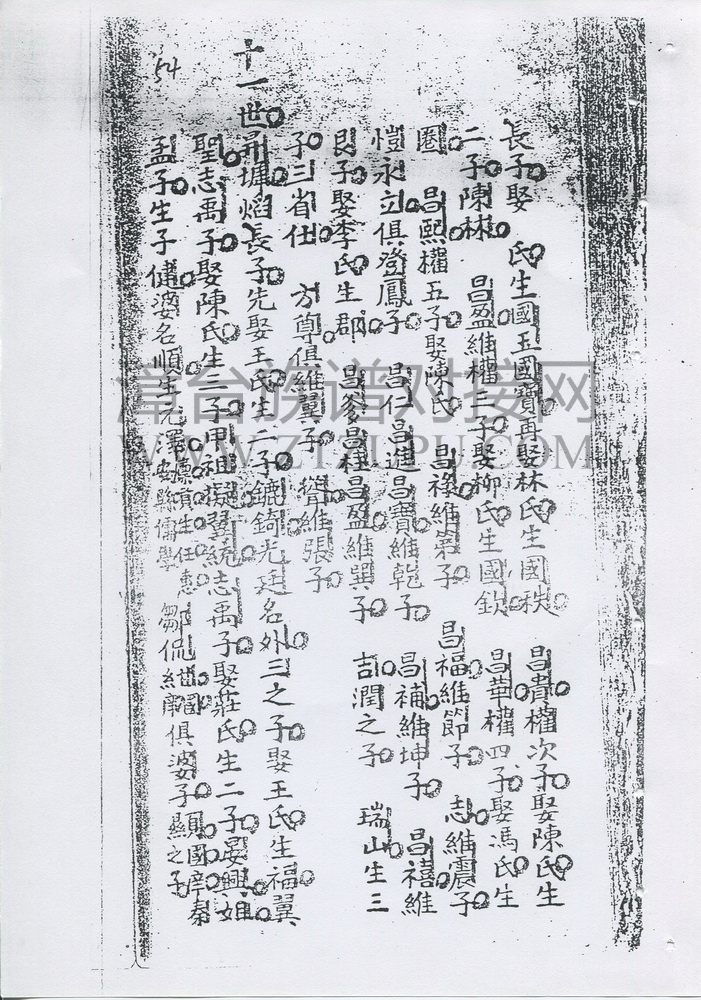 長子娶 氏生國玉國寶再娶林氏生國秩 昌貴權次子娶陳氏生
二子陳林 昌盈維權三子娶柳氏生國欽 昌華權四子娶馮氏生
圈 昌熙權五子娶陳氏 昌祿維第子 昌福維節子 志維震子
愷永立俱登鳳子 昌仁昌進昌寶維乾子 昌補維坤子 昌禧維
艮子娶李氏生郡 昌爹昌桂昌盈維巽子 吉潤之子 瑞山生三
子三省仕 方尊俱維翼子 維張子
十一世 墉焰長子先娶王氏生二子鑣錡光廷名外三之子娶王氏生福翼
聖志禹子娶陳氏生二子甲祖擬 統志禹子娶莊氏生二子晏興姐
孟子生子健婆名順生元澤 安縣儒學 生任惠 鄒侃 俱婆子顯之子 國庠泰
54
漳台族谱对接网
WWW.ZTZUPU.COM